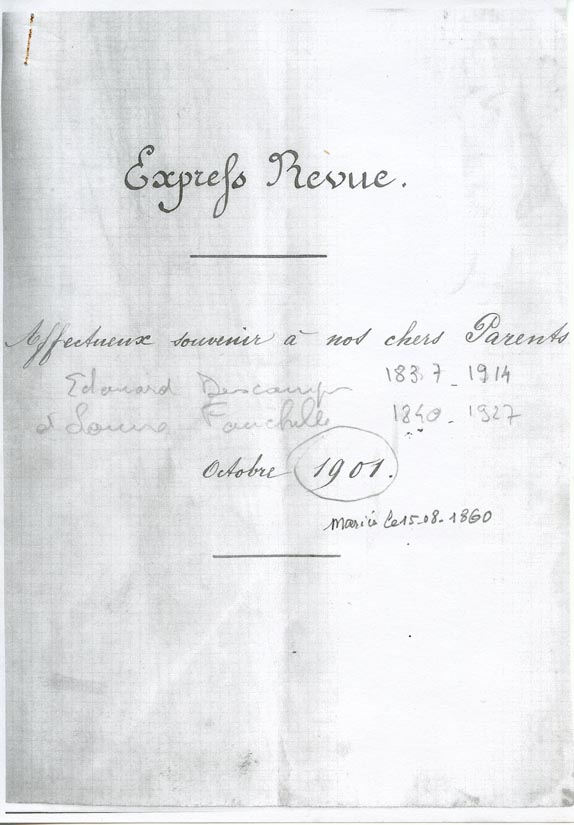 Express Revue.
Affectueux souvenir à nos chers Parents
Edouard Descamps 1837 - 1914
et Louise Fauchille 1840 - 1927
Octobre 1901.
Mariés le 15-08-1860